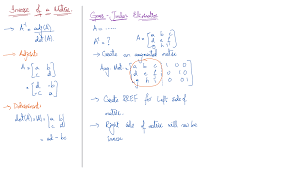 Inverse of a Matrix
→ A⁻¹ = adj(A)
det(A)
→ Adjoint:
A = [a b
c d]
= [d -b
-c a]
→ Determinant:
det(A) = |A| = |a b
c d|
= ad - bc
Gauss - Jordan Elimination
A = ......
A⁻¹ = ?
A = [a b c
d e f
g h i]
→ Create an augmented matrix
Aug Mat = [a b c 1 0 0
d e f 0 1 0
g h i 0 0 1]
→ Create RREF for Left side of
matrix.
→ Right side of matrix will now be
inverse